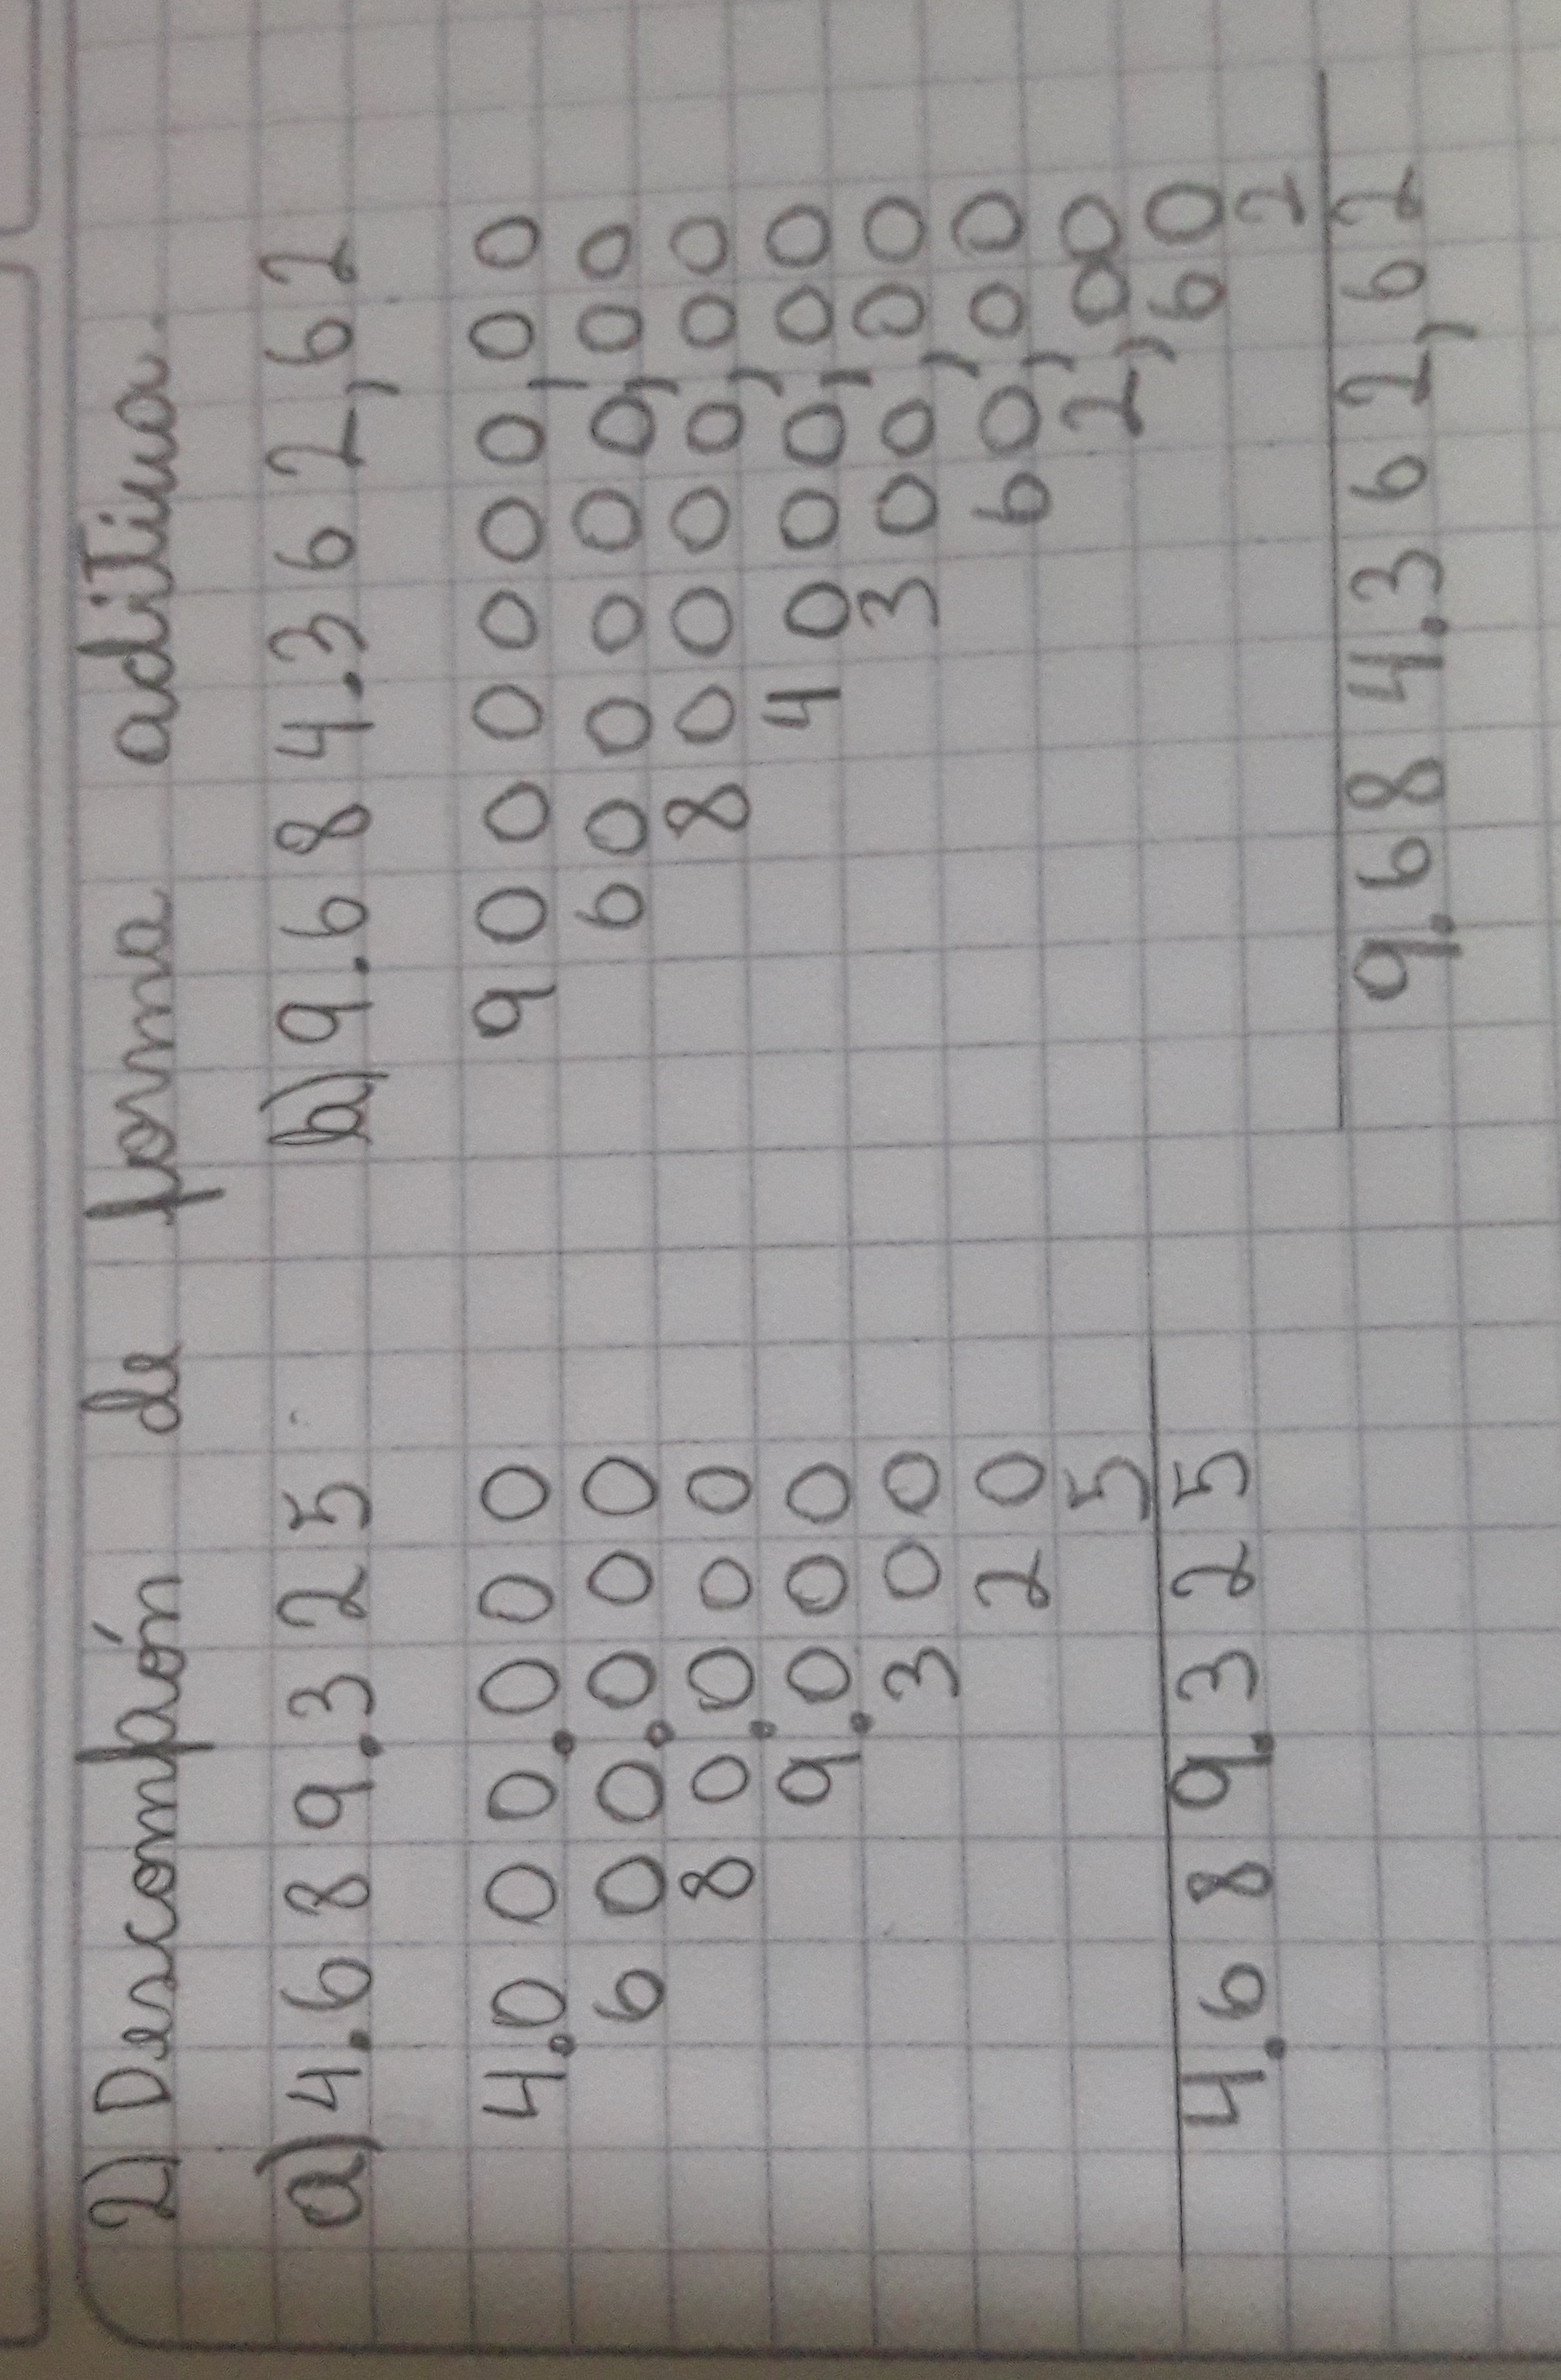 2) Descompón de forma aditiva.
a) 4.689.325
4.000.000
600.000
80.000
9.000
300
20
5
4.689.325
b) 9.684.362,62
9000000,00
600000,00
80000,00
4000,00
300,00
60,00
2,00
60
2
9.684.362,62